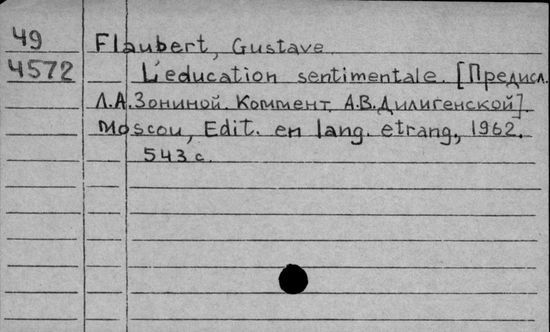 49 Flaubert, Gustave
4572 L'education sentimentale. [Предисл.
Л.А.Зониной. Коммент. А.В.Дилигенской].
Moscou, Edit. en lang. etrang., 1962.
543 с.